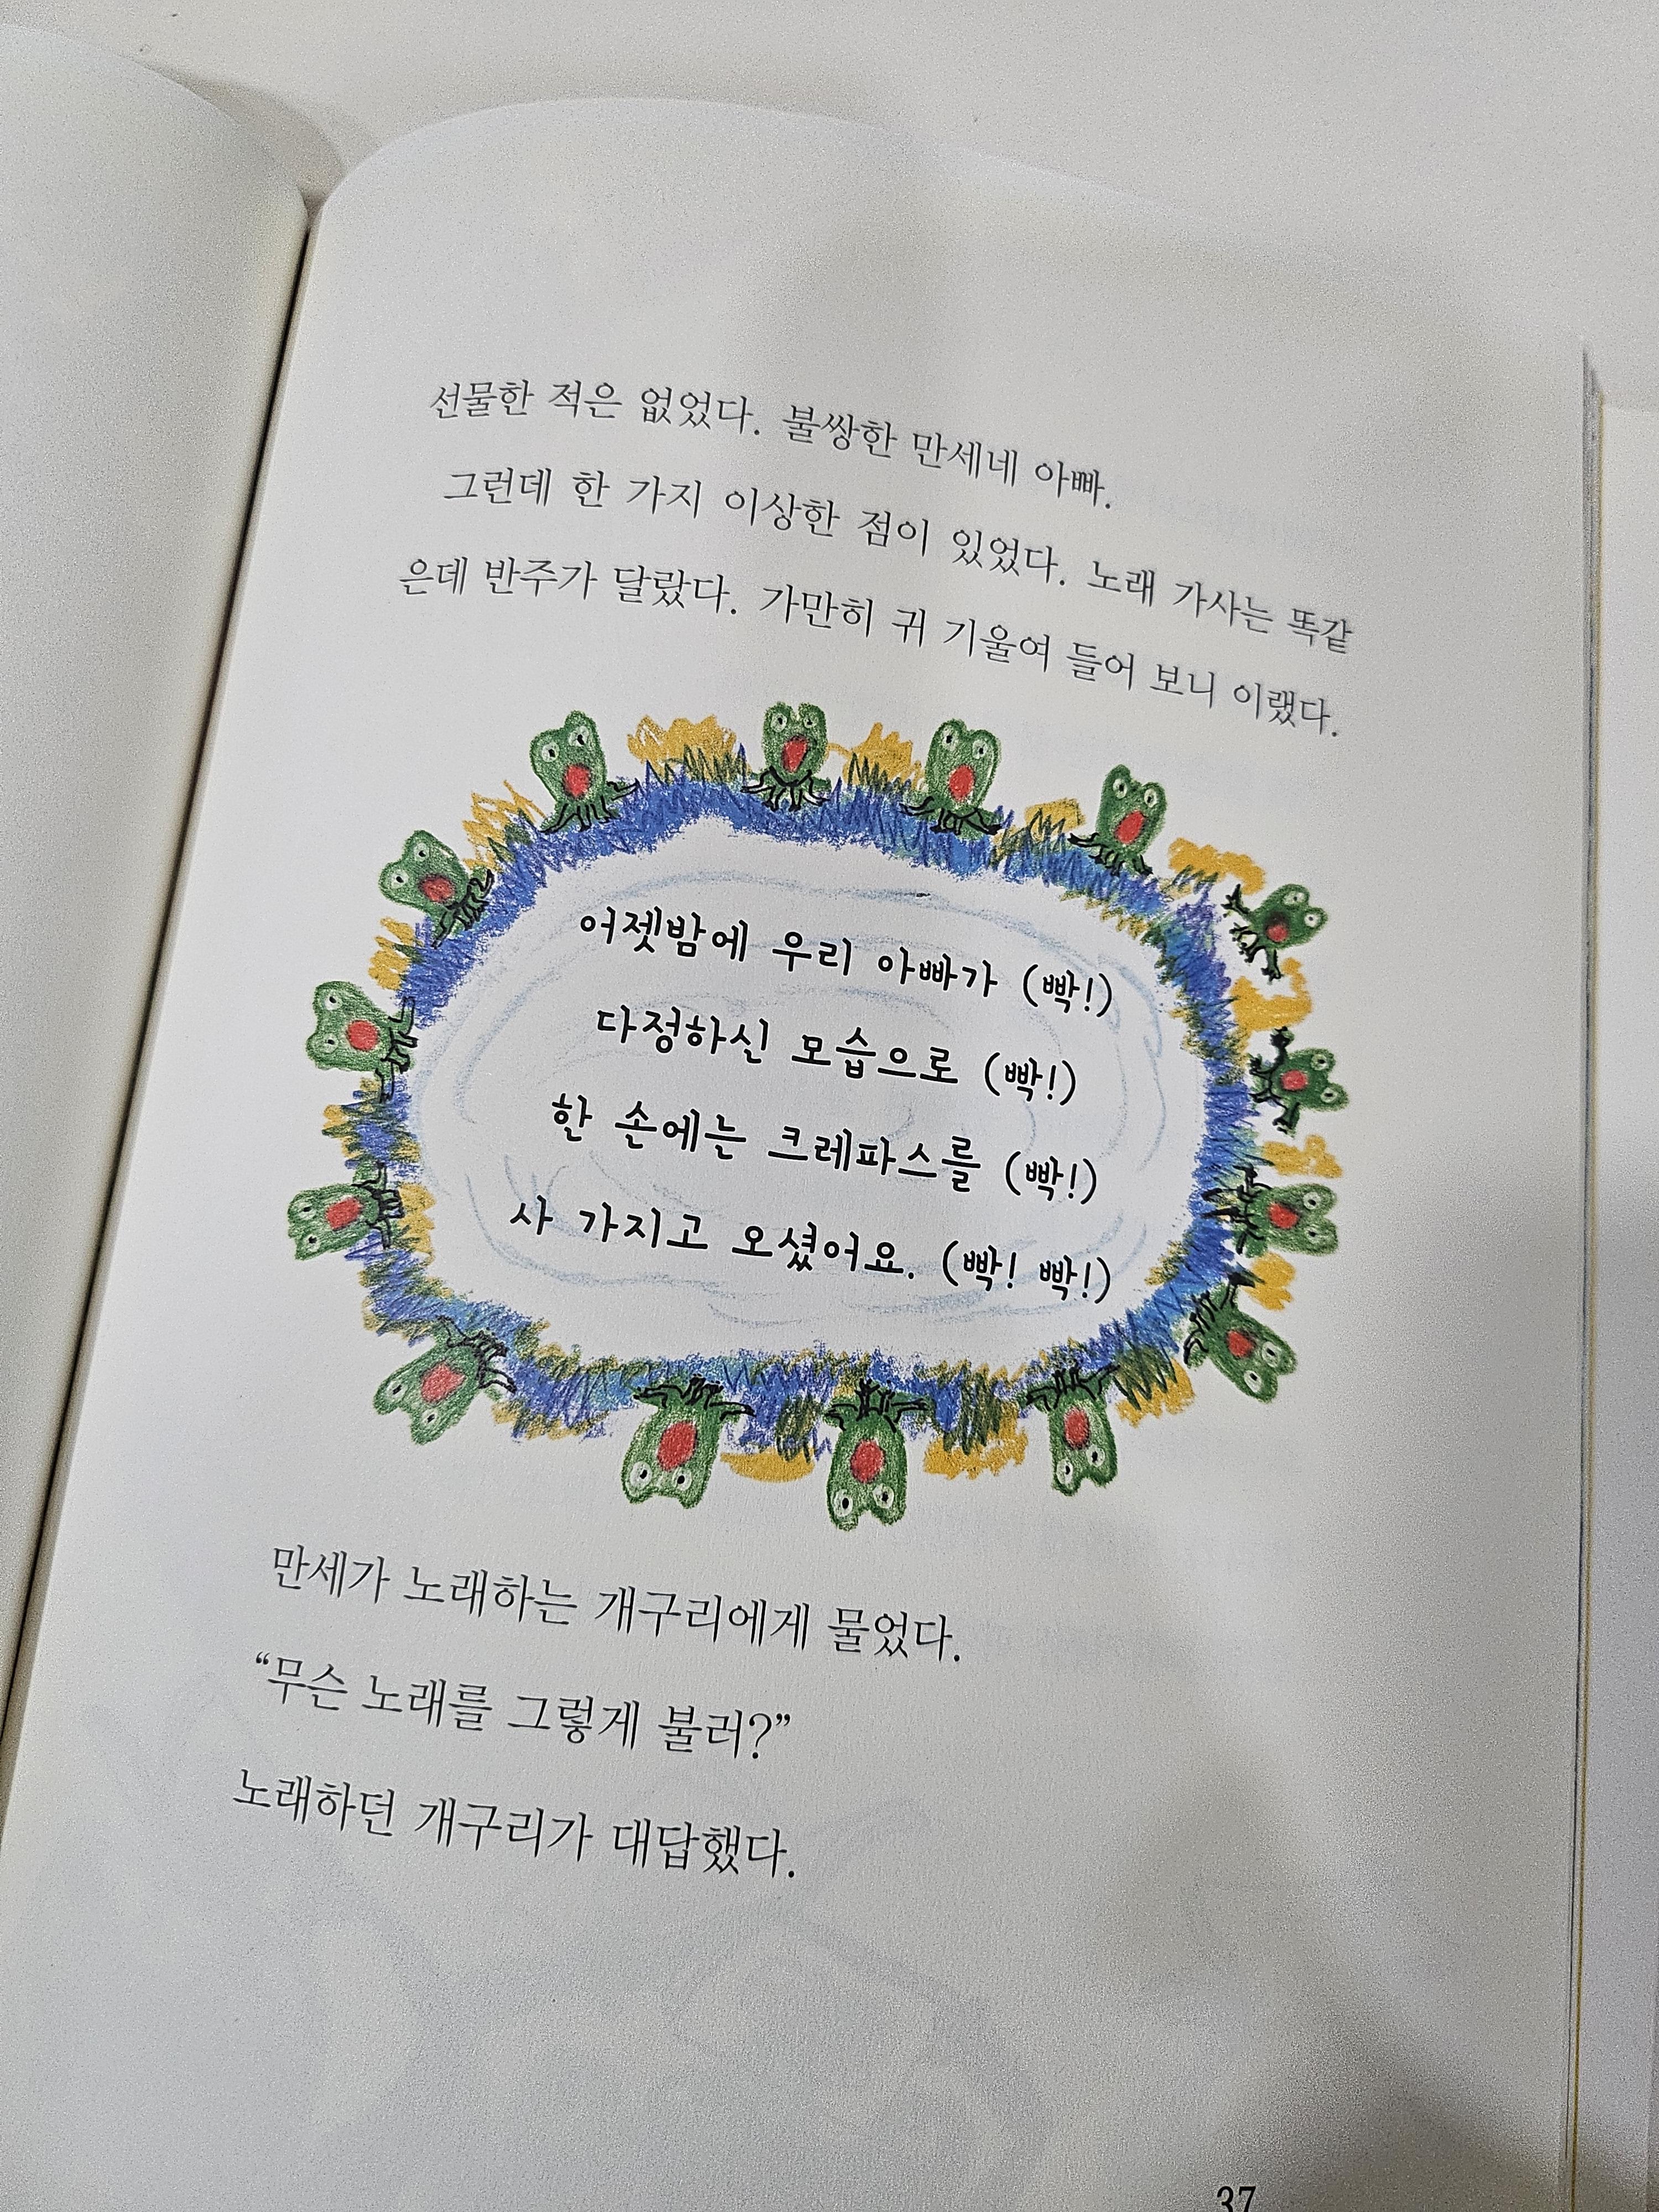 선물한 적은 없었다. 불쌍한 만세네 아빠.
그런데 한 가지 이상한 점이 있었다. 노래 가사는 똑같
은데 반주가 달랐다. 가만히 귀 기울여 들어 보니 이랬다.
어젯밤에 우리 아빠가 (빡!)
다정하신 모습으로 (빡!)
한 손에는 크레파스를 (빡!)
사 가지고 오셨어요. (빡! 빡!)
만세가 노래하는 개구리에게 물었다.
“무슨 노래를 그렇게 불러?”
노래하던 개구리가 대답했다.
37